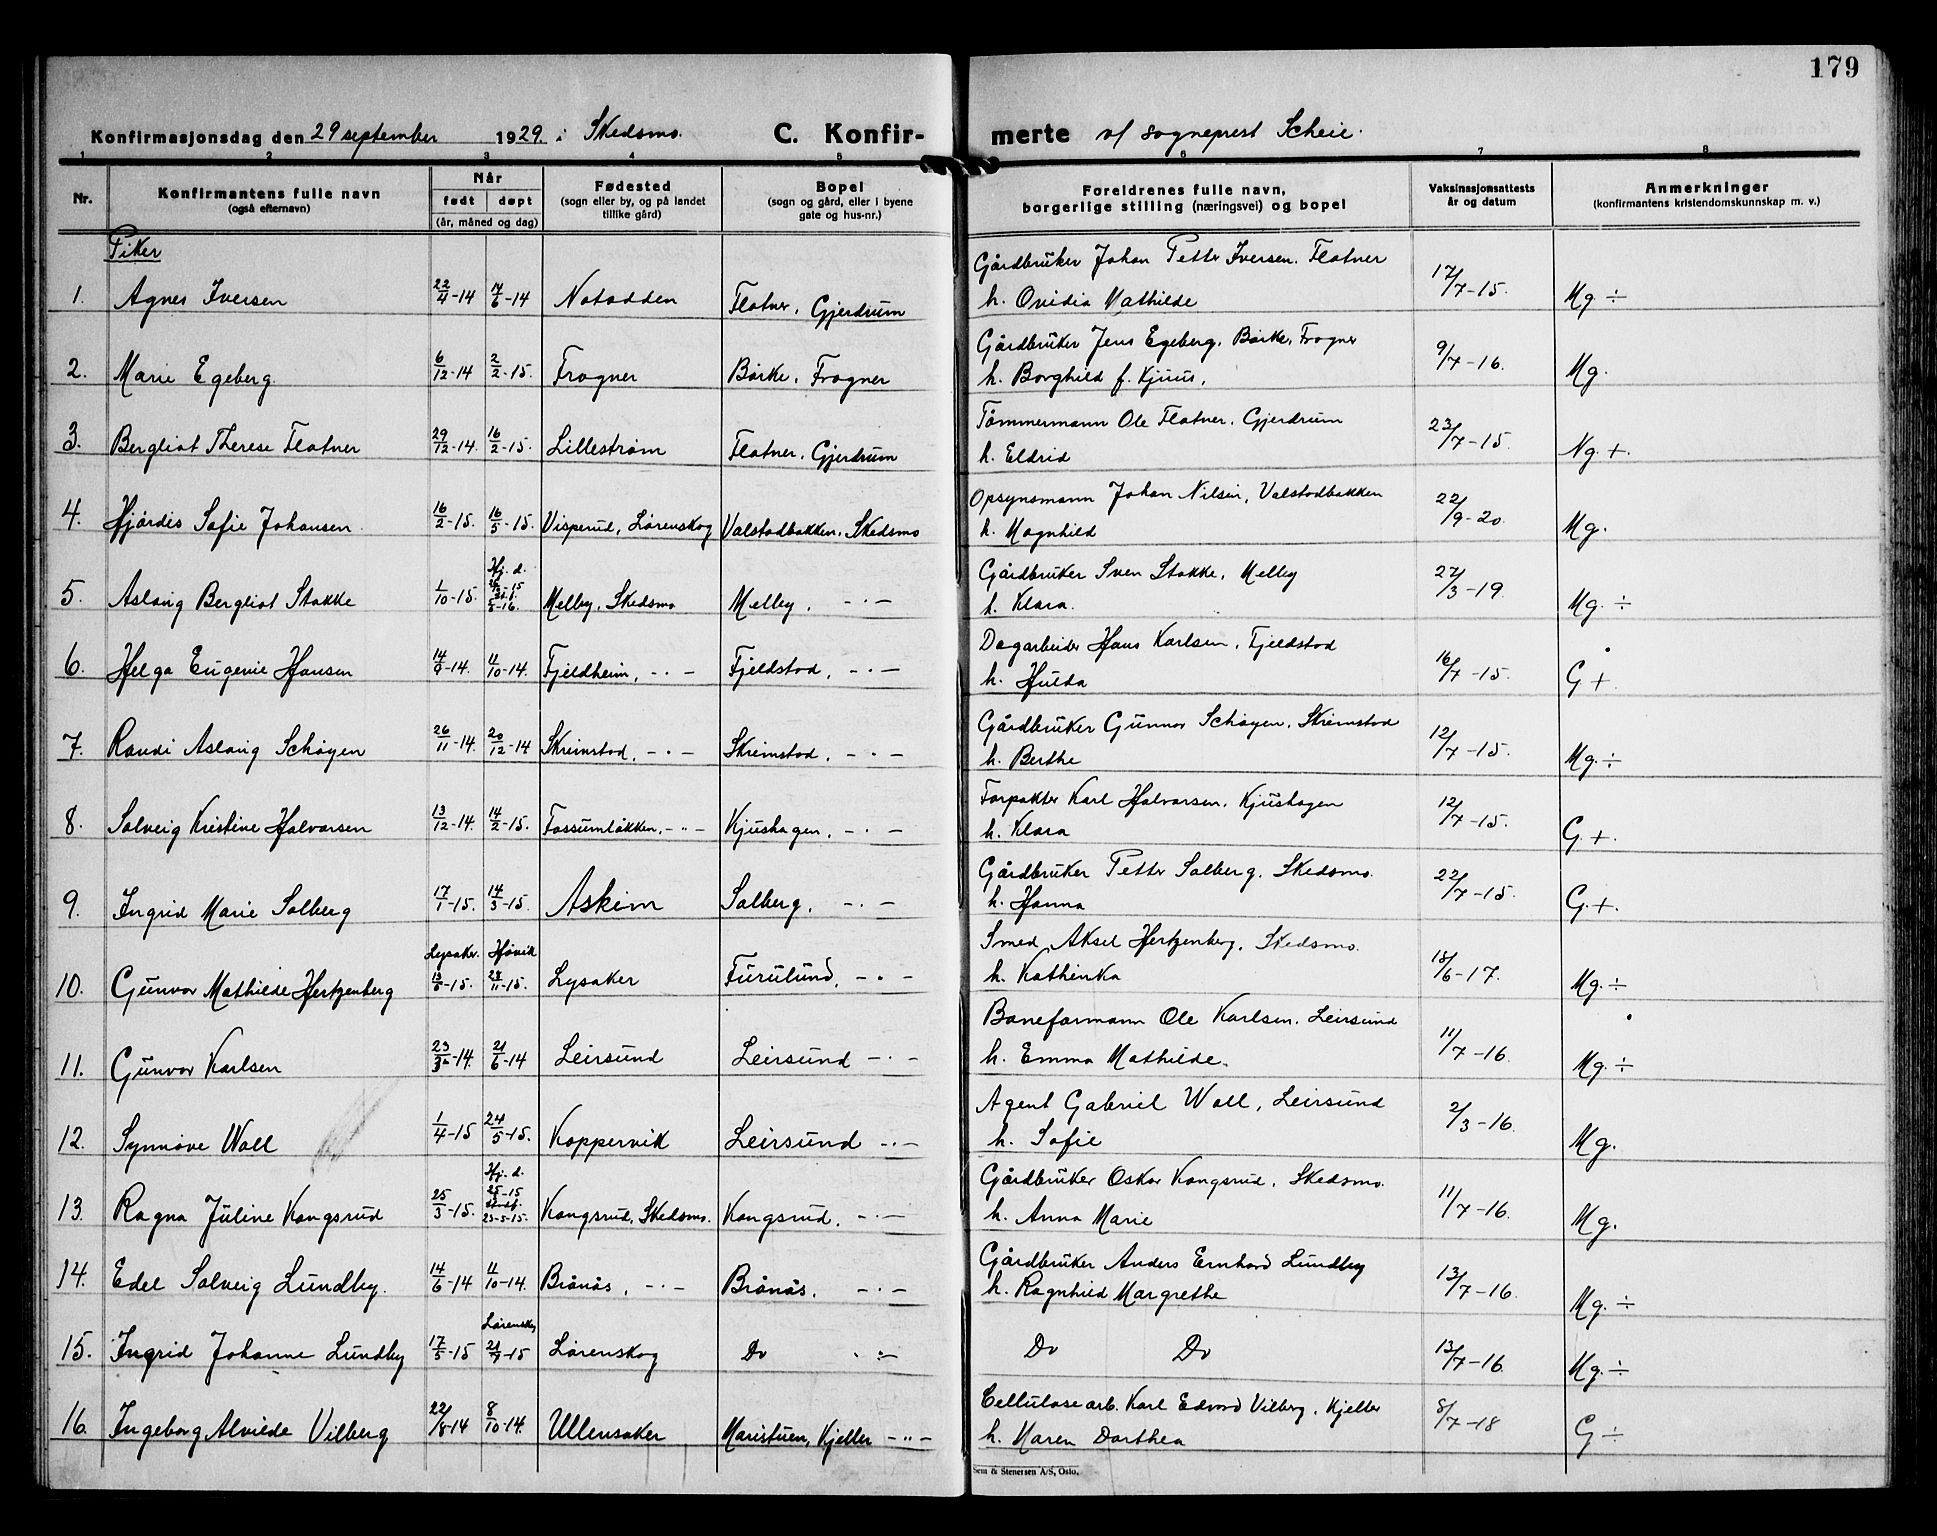 179
Konfirmasjonsdag den 29 september 1929. i Skedsmo. C. Konfirmerte v/ sogneprest Scheie.
1 2 3 4 5 6 7 8
Nr. Konfirmantens fulle navn (også efternavn) Når født døpt (år, måned og dag) Fødested (sogn eller by, og på landet tillike gård) Bopel (sogn og gård, eller i byene gate og hus-nr.) Foreldrenes fulle navn, borgerlige stilling (næringsvei) og bopel Vaksinasjonsattests år og datum Anmerkninger (konfirmantens kristendomskunnskap m. v.)
Piker
1. Agnes Iversen 22/4-14 14/6-14 Notodden Flatner, Gjerdrum Gårdbruker Johan Petter Iversen. Flatner
h. Ovidia Mathilde 17/7-15. Mg ÷
2. Marie Egeberg. 6/12-14 2/2-15. Frogner Börke, Frogner Gårdbruker Jens Egeberg. Börke, Frogner
h. Borghild f. Kjuus. 9/7-16. Mg.
3. Bergliot Therese Flatner 29/12-14. 16/2-15. Lillestrøm Flatner, Gjerdrum Tömmermann Ole Flatner. Gjerdrum
h. Eldrid 23/7-15. Ng. +.
4. Hjördis Sofie Johansen. 16/2-15. 16/5-15. Visperud, Lørenskog Valstadbakken, Skedsmo Opsynsmann Johan Nilsen, Valstadbakken
h. Magnhild 22/9-20. Mg.
5. Aslaug Bergliot Stokke 1/10-15. Hj. d. Melby, Skedsmo Melby, -·- Gårdbruker Sven Stokke, Melby
h. Klara. 27/3-19. Mg. ÷
6. Helga Eugenie Hansen 14/9-14. 11/10-14. Fjeldheim, -·- Fjeldstad, -·- Dagarbeider Hans Karlsen, Fjeldstad
h. Hulda 16/7-15. G +.
7. Randi Aslaug Schøyen 26/11-14. 20/12-14 Skrimstad, -·- Skrimstad, -·- Gårdbruker Gunnar Schøyen, Skrimstad
h. Berthe 12/7-15. Mg. ÷
8. Solveig Kristine Halvorsen 13/12-14. 14/2-15. Fossumløkken, -"- Kjushagen, -·- Forpakter Karl Halvorsen, Kjushagen
h. Klara 12/7-15. G. +.
9. Ingrid Marie Solberg 17/1-15. 14/3-15. Askim Solberg, -·- Gårdbruker Petter Solberg. Skedsmo.
h. Hanna 22/7-15. G. +.
Lysaker. Høvik
10. Gunvor Mathilde Hertzenberg 28/11-15. Lysaker Furulund, -·- Smed Aksel Hertzenberg, Skedsmo.
h. Kathinka 18/6-17. Mg. ÷
11. Gunvor Karlsen 23/3-14. 21/6-14 Leirsund Leirsund -·- Baneformann Ole Karlsen. Leirsund
h. Emma Mathilde. 11/7-16. Mg. ÷
12. Synnøve Wall 1/4-15 24/5-15. Koppervik Leirsund -·- Agent Gabriel Wall, Leirsund
h. Sofie 2/3-16. Mg.
13. Ragna Juline Kongsrud 25/3-15. Hj. d. 23-5-15. Kongsrud, Skedsmo. Kongsrud, -·- Gårdbruker Oskar Kongsrud, Skedsmo.
h. Anna Marie 11/7-16. Mg.
14. Edel Solveig Lundby. 14/6-14 11/10-14. Brånås, -·- Brånås, -·- Gårdbruker Anders Ernhard Lundby
h. Ragnhild Margrethe 13/7-16. Mg. ÷
Lørenskog
15. Ingrid Johanne Lundby 17/5-15 Lørenskog Do -·- Do Do 13/7-16. Mg. ÷
16. Ingeborg Alvilde Vilberg 22/8-14 8/10-14. Ullensaker Maristuen, Kjeller -"- Cellulosearb. Karl Edvard Vilberg, Kjeller
h. Maren Dorthea 8/7-18 G ÷
Sem & Stenersen A/S, Oslo.